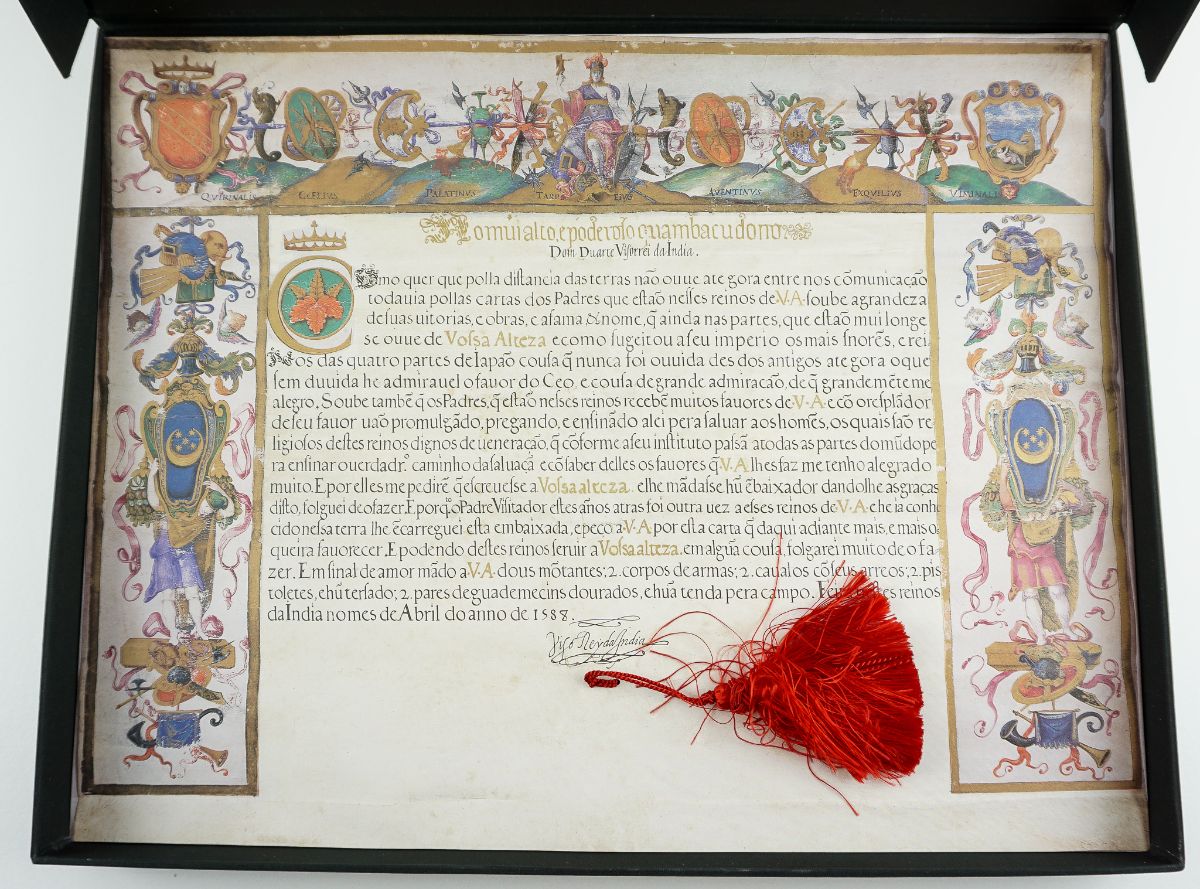 QVIRINALIS CŒLIVS PALATINVS TARP EIVS AVENTINVS EXQVELIVS VISVINALI
Ao mui alto, e poderoso quambacudono
Dom Duarte Visorrei da India.
Como quer que polla distancia das terras não ouue ate gora entre nos cõmunicação
todauia pollas cartas dos Padres que estaõ nesses reinos de V.A. soube a grandeza
de suas uitorias, e obras, e a fama & nome, q̃ ainda nas partes, que estaõ mui longe
se ouue de Vossa Alteza e como sugeitou a seu imperio os mais snorẽs, e rei,
Nos das quatro partes de Iapaõ cousa q̃ nunca foi ouuida des dos antigos ate gora o que
sem duuida he admirauel o fauor do Ceo, e cousa de grande admiracaõ, de q̃ grandemẽte me
alegro. Soube tambẽ q̃ os Padres, q̃ estaõ nesses reinos recebẽ muitos fauores de V.A. e cõ o resplãdor
de seu fauor uaõ promulgãdo, pregando, e ensinãdo a lei pera saluar aos homẽs, os quais saõ re-
ligiosos destes reinos dignos de ueneração, q̃ cõforme a seu instituto passã a todas as partes do mũdo pe
ra ensinar o uerdadrº. caminho da saluaçã e cõ saber delles os fauores q̃ V.A lhes faz me tenho alegrado
muito. E por elles me pedirẽ q̃ escreuesse a Vossa alteza. e lhe mãdasse hũ ẽbaixador dandolhe as graças
disto, folguei de o fazer. E porq̃ o Padre Visitador estes años atras foi outra uez a esses reinos de V.A. e he ia conhe
cido nesa terra lhe ẽcarreguei esta embaixada, e peço a V.A por esta carta q̃ daqui adiante mais, e mais o
queira fauorecer. E podendo destes reinos seruir a Vossa alteza. em algũa cousa, folgarei muito de o fa-
zer. Em sinal de amor mãdo a V.A. dous mõtantes; 2. corpos de armas; 2. caualos cõ seus arreos; 2. pis
toletes, e hũ tersado; 2. pares de guadamecins dourados, e hũa tenda pera campo. reinos
da India no mes de Abril do anno de 1588.
Viso Rey da India